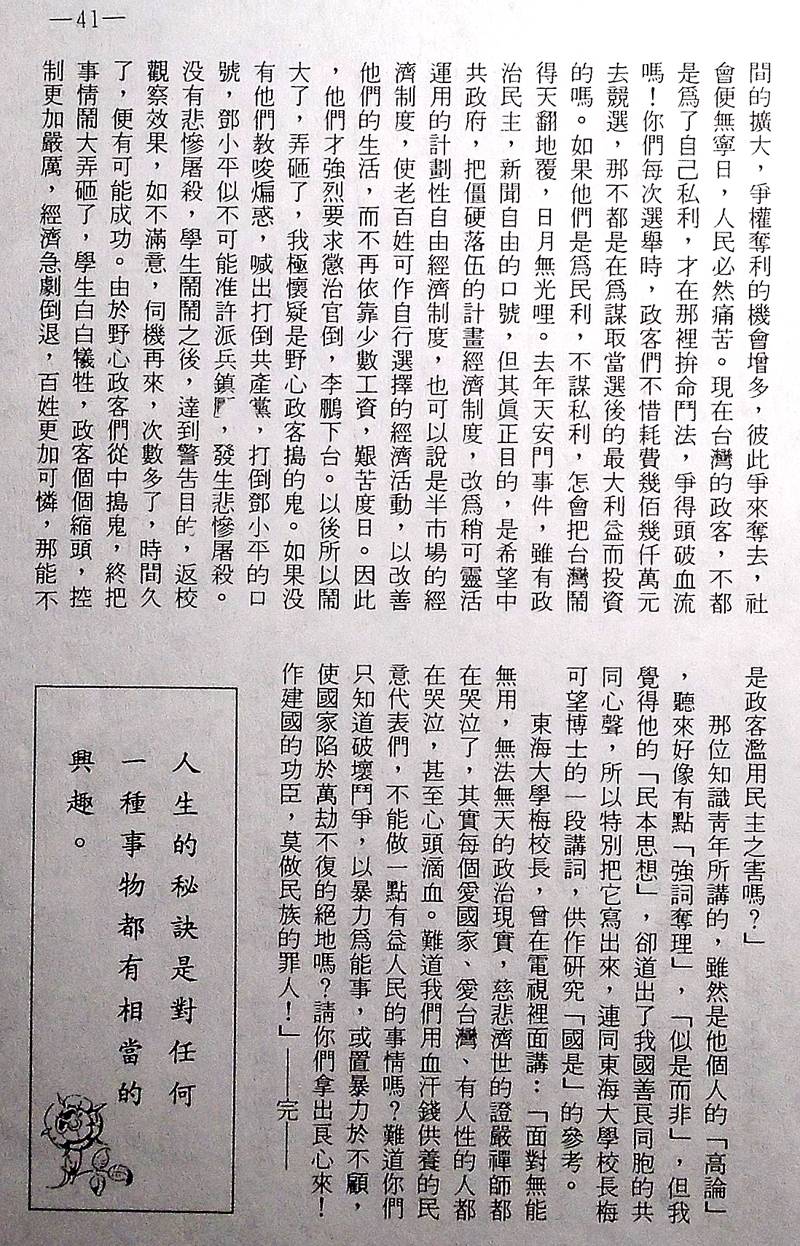 —41—
間的擴大，爭權奪利的機會增多，彼此爭來奪去，社
會便無寧日，人民必然痛苦。現在台灣的政客，不都
是爲了自己私利，才在那裡拚命鬥法，爭得頭破血流
嗎！你們每次選舉時，政客們不惜耗費幾佰幾仟萬元
去競選，那不都是在爲謀取當選後的最大利益而投資
的嗎。如果他們是爲民利，不謀私利，怎會把台灣鬧
得天翻地覆，日月無光哩。去年天安門事件，雖有政
治民主，新聞自由的口號，但其眞正目的，是希望中
共政府，把僵硬落伍的計畫經濟制度，改爲稍可靈活
運用的計劃性自由經濟制度，也可以說是半市場的經
濟制度，使老百姓可作自行選擇的經濟活動，以改善
他們的生活，而不再依靠少數工資，艱苦度日。因此
，他們才強烈要求懲治官倒，李鵬下台。以後所以鬧
大了，弄砸了，我極懷疑是野心政客搗的鬼。如果没
有他們教唆煽惑，喊出打倒共產黨，打倒鄧小平的口
號，鄧小平似不可能准許派兵鎮，發生悲慘屠殺。
没有悲慘屠殺，學生鬧鬧之後，達到警告目的，返校
觀察效果，如不滿意，伺機再來，次數多了，時間久
了，便有可能成功。由於野心政客們從中搗鬼，終把
事情鬧大弄砸了，學生白白犧牲，政客個個縮頭，控
制更加嚴厲，經濟急劇倒退，百姓更加可憐，那能不
是政客濫用民主之害嗎？」
那位知識靑年所講的，雖然是他個人的「高論」
，聽來好像有點「強詞奪理」，「似是而非」，但我
覺得他的「民本思想」，卻道出了我國善良同胞的共
同心聲，所以特別把它寫出來，連同東海大學校長梅
可望博士的一段講詞，供作研究「國是」的參考。
東海大學梅校長，曾在電視裡面講：「面對無能
無用，無法無天的政治現實，慈悲濟世的證嚴禪師都
在哭泣了，其實每個愛國家、愛台灣、有人性的人都
在哭泣，甚至心頭滴血。難道我們用血汗錢供養的民
意代表們，不能做一點有益人民的事情嗎？難道你們
只知道破壞鬥爭，以暴力爲能事，或置暴力於不顧，
使國家陷於萬劫不復的絕地嗎？請你們拿出良心來！
作建國的功臣，莫做民族的罪人！」——完——
人生的秘訣是對任何
一種事物都有相當的
興趣。